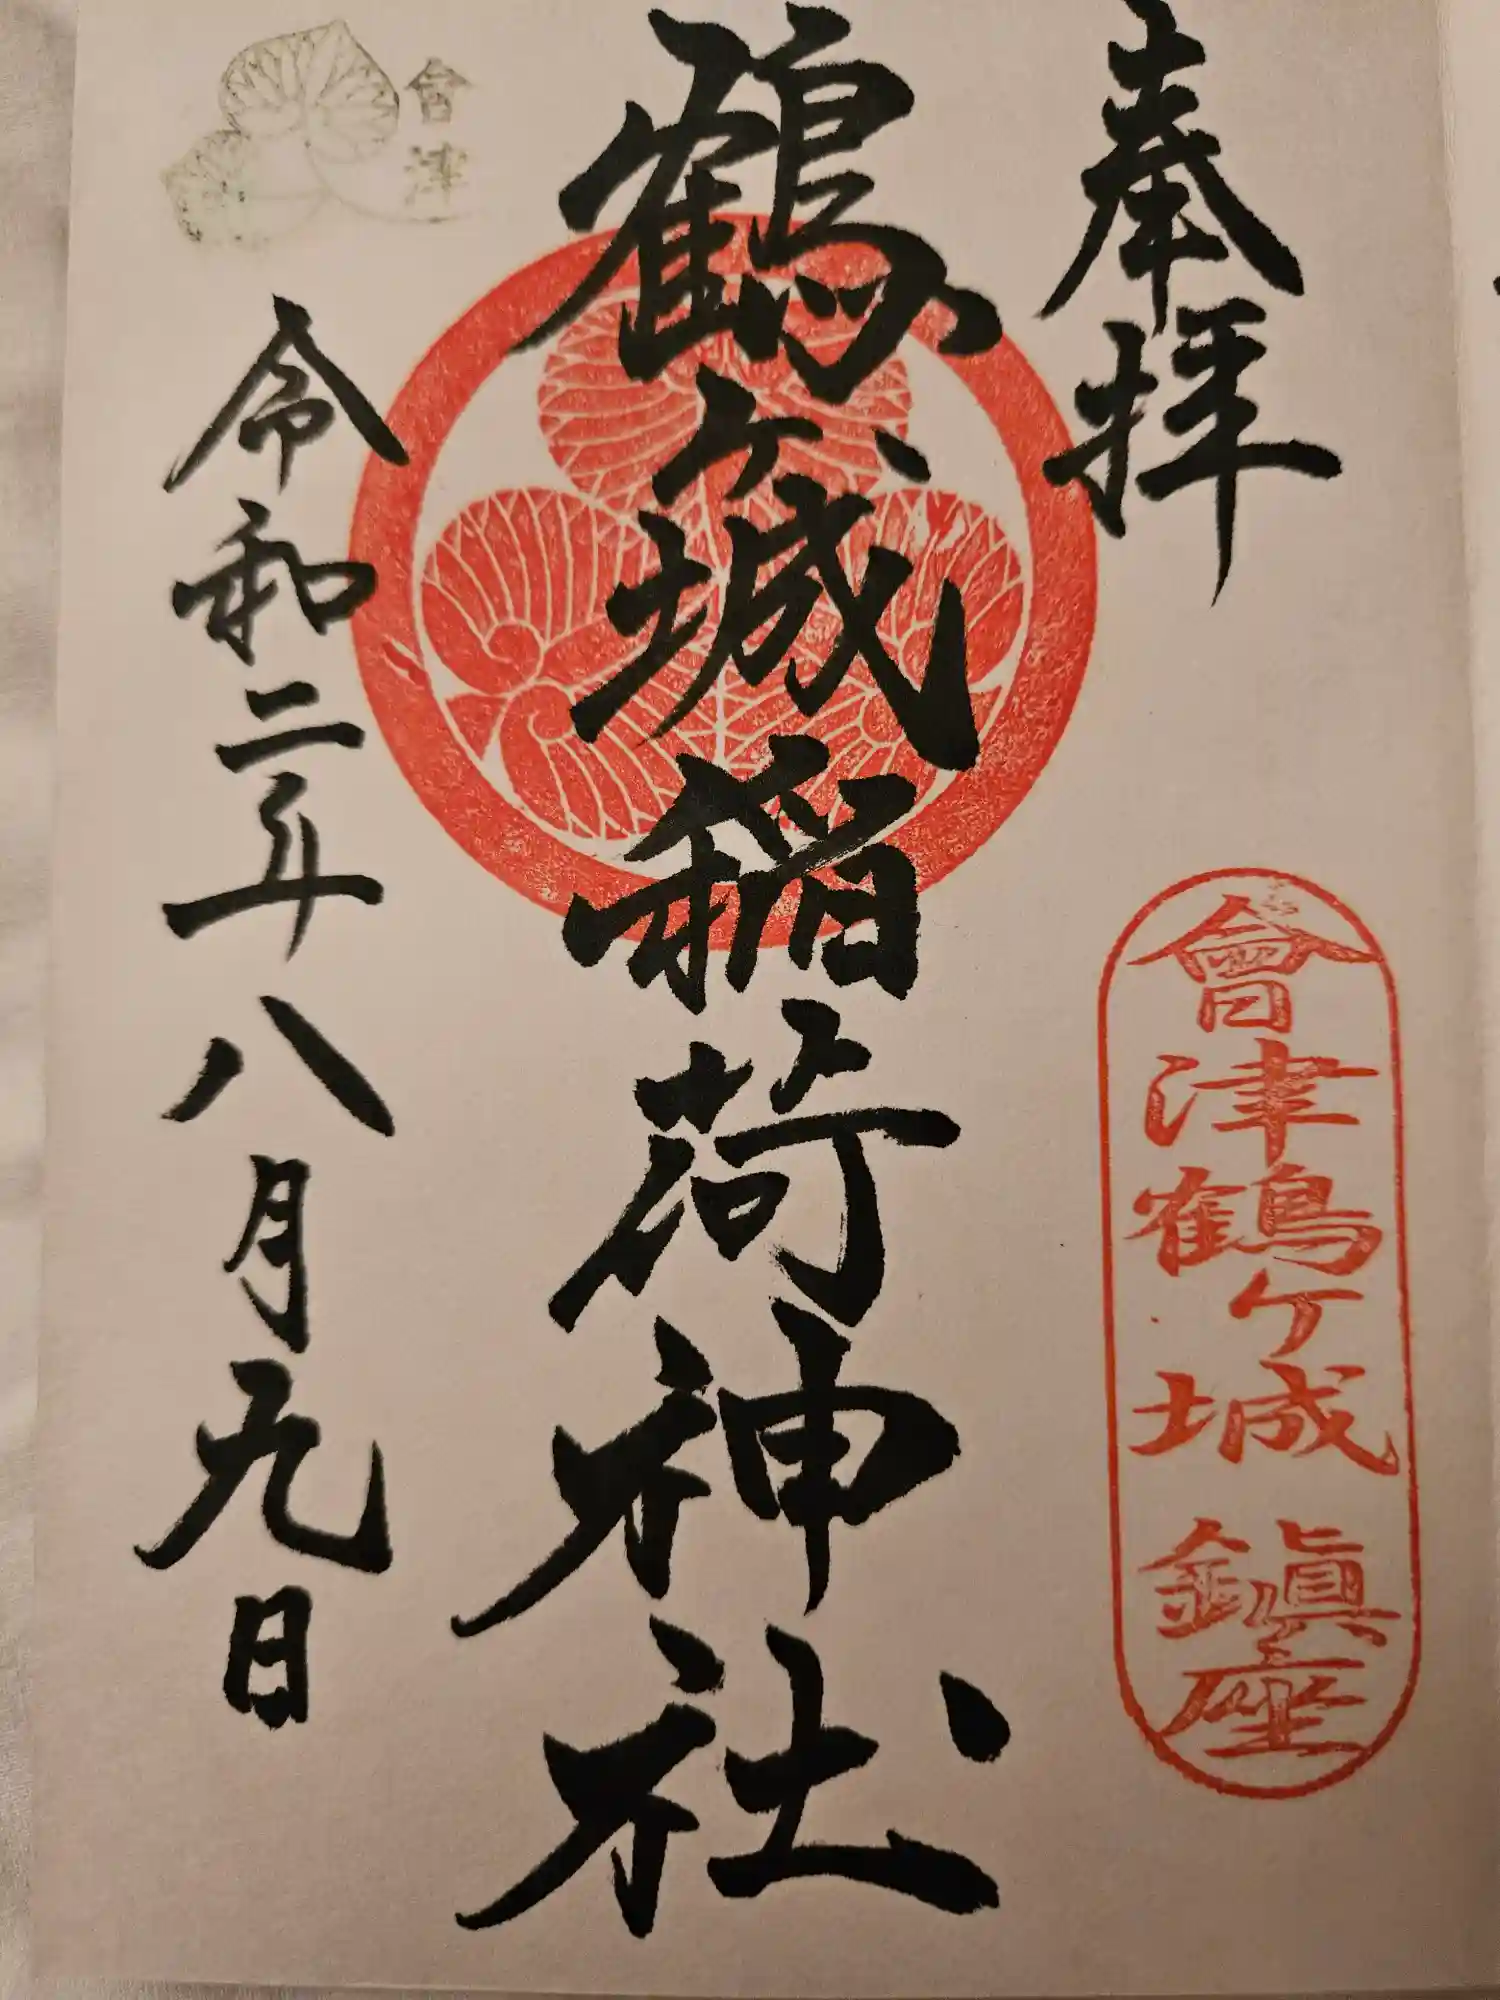 奉拝
會津鶴ヶ城鎮座
鶴ヶ城稲荷神社
會津
令和二年八月九日